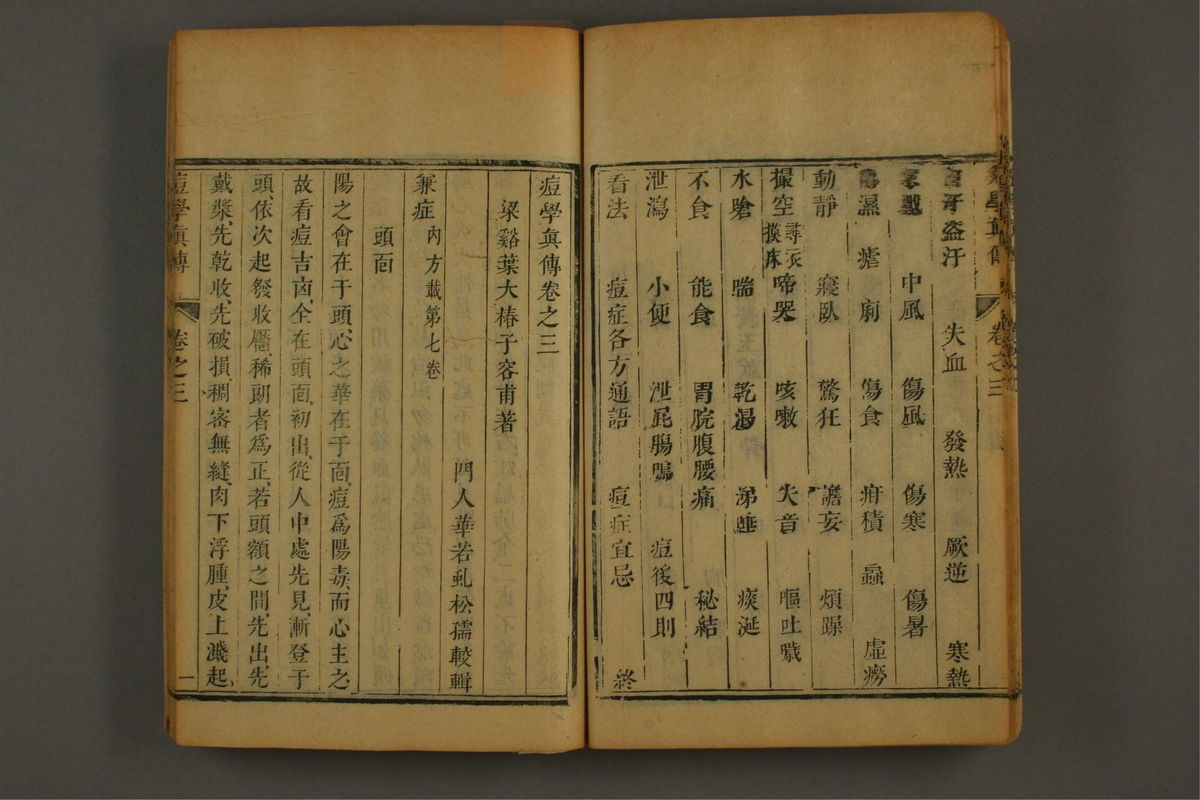 盜汗 失血 發熱 厥逆 寒熱
中風 傷風 傷寒 傷暑
濕 瘧 痢 傷食 疳積 蟲 虛癆
動靜 寢臥 驚狂 譫妄 煩躁
撮空 尋衣摸床 啼哭 咳嗽 失音 嘔吐噦
水嗆 喘 乾渴 涕唾 痰涎
不食 能食 胃脘腹腰痛 秘結
泄瀉 小便 泄屁腸鳴 痘後四則
看法 痘症各方通語 痘症宜忌 終
卷之三
痘學眞傳卷之三
梁谿葉大椿子容甫著
門人華若虬松孺較輯
兼症 內方載第七卷
頭面
陽之會在于頭、心之華在于面、痘爲陽毒、而心主之
故看痘吉凶、全在頭面、初出、從人中處先見、漸登于
頭、依次起發收靨、稀朗者爲正、若頭額之間、先出、先
戴漿、先乾收、先破損稠密無縫、肉下浮腫、皮上濺起、
痘學眞傳 卷之三 一